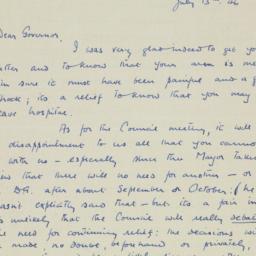 July 13th. 46
Dear Governor,
I was very glad indeed to get yo
tter and to know that your arm is me
I'm sure it must have been painful and a g
hock; its a relief to know that you may
eave hospital.
As for the Council meeting, it will
disappointment to us all that you cannot
with us - especially since the Mayor takes
iew that there will no need for another - or
DG. after about September or October. (he
asn't explicitly said that - but its a fair in
is unlikely that the Council will really debate
he need for continuing relief: the decisions wi
made no doubt, beforehand or privately,